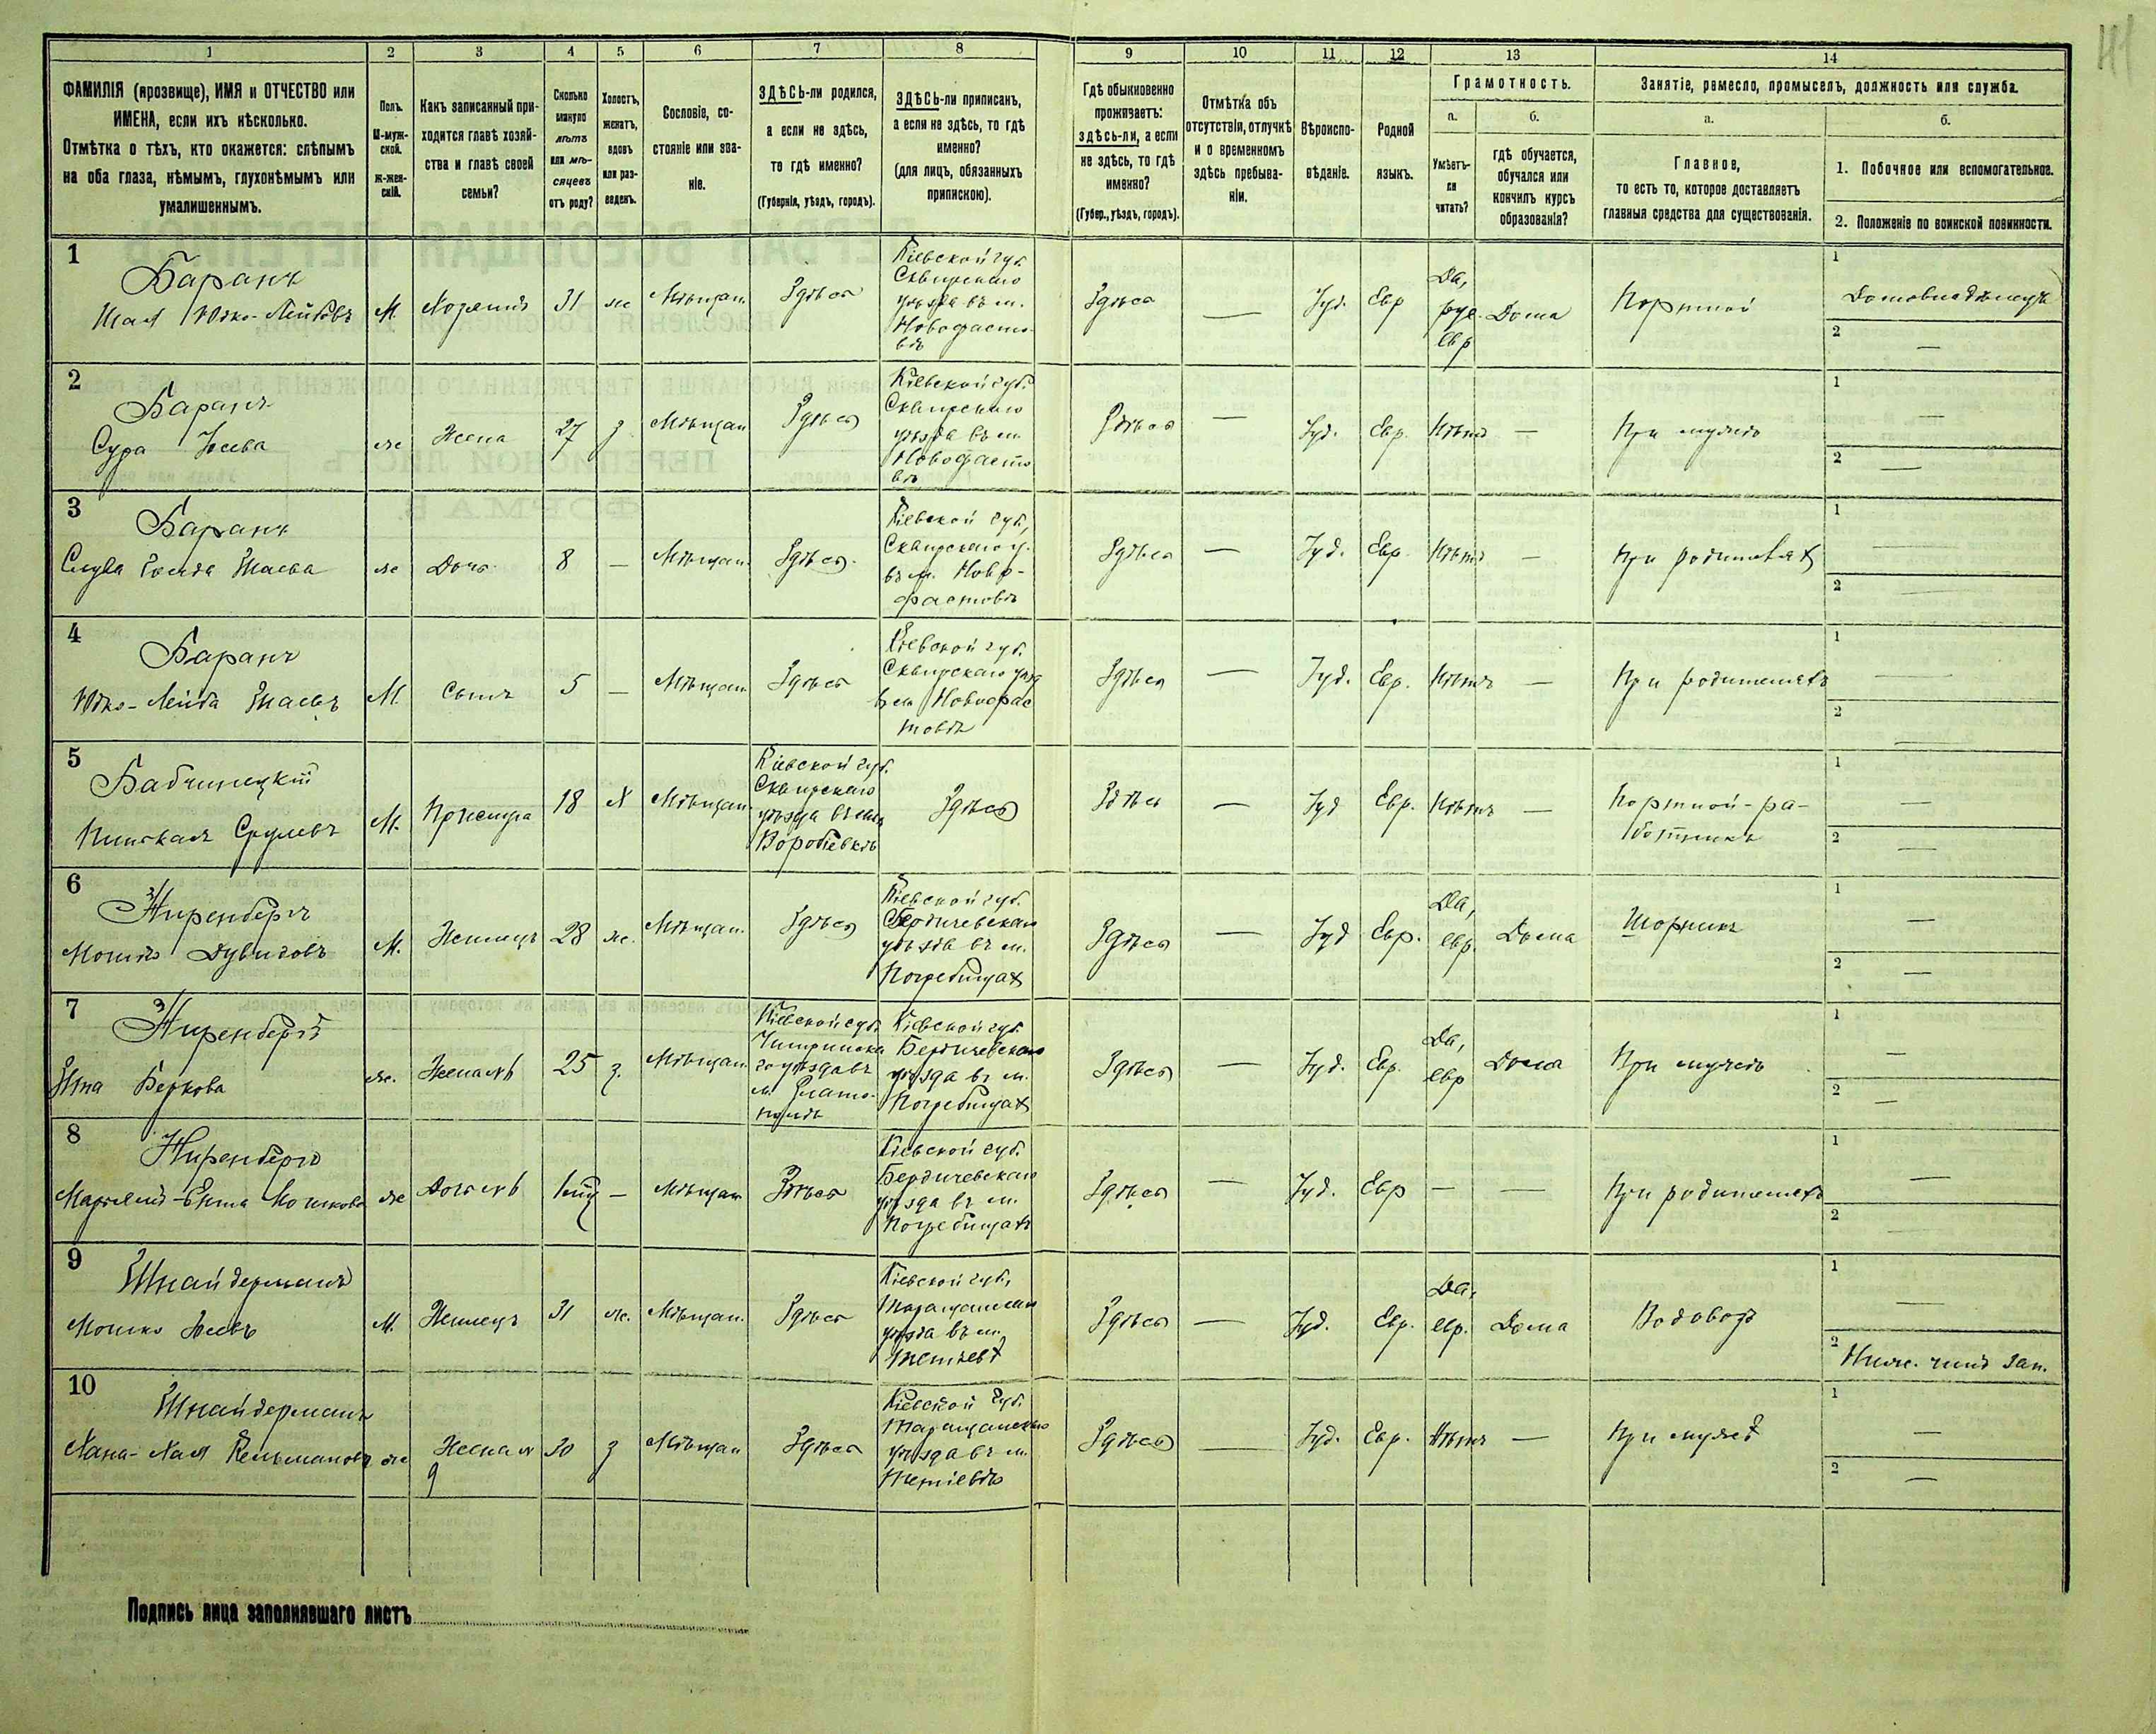 41
1 2 3 4 5 6 7 8 9 10 11 12 13 14
ФАМИЛІЯ (прозвище), ИМЯ и ОТЧЕСТВО или
ИМЕНА, если ихъ нѣсколько.
Отмѣтка о тѣхъ, кто окажется: слѣпымъ
на оба глаза, нѣмымъ, глухонѣмымъ или
умалишеннымъ.
Полъ.
М-муж-
ской.
Ж-жен-
скій.
Какъ записанный при-
ходится главѣ хозяй-
ства и главѣ своей
семьи?
Сколько
минуло
лѣтъ
или мѣ-
сяцевъ
отъ роду?
Холостъ,
женатъ,
вдовъ
или раз-
веденъ.
Сословіе, со-
стояніе или зва-
ніе.
ЗДѢСЬ-ли родился,
а если не здѣсь,
то гдѣ именно?
(Губернія, уѣздъ, городъ).
ЗДѢСЬ-ли приписанъ,
а если не здѣсь, то гдѣ
именно?
(для лицъ, обязанныхъ
припискою).
Гдѣ обыкновенно
проживаетъ:
здѣсь-ли, а если
не здѣсь, то гдѣ
именно?
(Губер., уѣздъ, городъ).
Отмѣтка объ
отсутствіи, отлучкѣ
и о временномъ
здѣсь пребыва-
ніи.
Вѣроиспо-
вѣданіе.
Родной
языкъ.
Грамотность.
а.
Умѣетъ-
ли
читать?
б.
гдѣ обучается,
обучался или
кончилъ курсъ
образованія?
Занятіе, ремесло, промыселъ, должность или служба.
а.
Главное,
то есть то, которое доставляетъ
главныя средства для существованія.
б.
1. Побочное или вспомогательное.
2. Положеніе по воинской повинности.
1
Баранъ
Шая Юдко-Лейбовъ
М.
Хозяинъ
31
ж
Мѣщан.
Здѣсь
Кіевской губ.
Сквирскаго
уѣзда въ м.
Новофасто-
вѣ
Здѣсь
—
Іуд.
Евр
Да,
рус.
евр
Дома
Портной
1
Домовладѣлецъ
2
—
2
Баранъ
Сура Іосева
ж
Жена
27
з
Мѣщан
Здѣсь
Кіевской губ.
Сквирскаго
уѣзда въ м.
Новофасто
вѣ
Здѣсь
—
Іуд.
Евр.
Нѣтъ
—
При мужѣ
1
—
2
—
3
Баранъ
Слува Гольда Шаева
ж
Дочь
8
—
Мѣщан.
Здѣсь.
Кіевской губ,
Сквирскаго у.
въ м. Ново-
фастовѣ
Здѣсь
—
Іуд.
Евр.
Нѣтъ
—
При родителях
1
—
2
—
4
Баранъ
Юдко-Лейба Шаевъ
М.
Сынъ
5
—
Мѣщан.
Здѣсь
Кіевской губ.
Сквирскаго уѣзд
въ м Новофас
товѣ
Здѣсь
—
Іуд.
Евр.
Нѣтъ
—
При родителяхъ
1
—
2
—
5
Бабчинецкій
Пинхасъ Срулевъ
М.
Прислуга
18
Х
Мѣщан.
Кіевской губ.
Сквирскаго
уѣзда въ
Воробіевкѣ
Здѣсь
Здѣсь
—
Іуд
Евр.
Нѣтъ
—
Портной-ра-
ботникъ
1
—
2
—
6
Ниренбергъ
Мошко Дувидовъ
М.
Жилецъ
28
ж.
Мѣщан.
Здѣсь
Кіевской губ.
Бердичевскаго
уѣзда въ м.
Погребищах
Здѣсь
—
Іуд
Евр.
Да,
евр.
Дома
Шорникъ
1
—
2
—
7
Ниренбергъ
Эта Беркова
ж.
Жена №6
25
з.
Мѣщан.
Кіевской губ.
Чигринска
го уѣзда въ
м. Злато-
полѣ
Кіевской губ.
Бердичевскаго
уѣзда въ м.
Погребищах
Здѣсь
—
Іуд.
Евр.
Да,
евр
Дома
При мужѣ
1
—
2
—
8
Ниренбергъ
Ента Мошкова
ж
Дочь №6
—
Мѣщан
Здѣсь
Кіевской губ.
Бердичевскаго
уѣзда въ м.
Погребищахъ
Здѣсь
—
Іуд.
Евр
—
—
При родителяхъ
1
—
2
—
9
Шнайдерманъ
Мошко Іосевъ
М.
Жилецъ
31
ж.
Мѣщан.
Здѣсь
Кіевской губ,
Таращанскаго
уѣзда въ м.
Тетіевѣ
Здѣсь
—
Іуд.
Евр.
Да,
евр.
Дома
Водовозъ
1
—
2
Ниж. чинъ зап.
10
Шнайдерманъ
Хана-Хая Кельманова
ж
Жена №
9
30
з
Мѣщан
Здѣсь
Кіевской губ.
Таращанскаго
уѣзда въ м.
Тетіевѣ
Здѣсь
—
Іуд.
Евр.
Нѣтъ
—
При мужѣ
1
—
2
—
Подпись лица заполнявшаго листъ